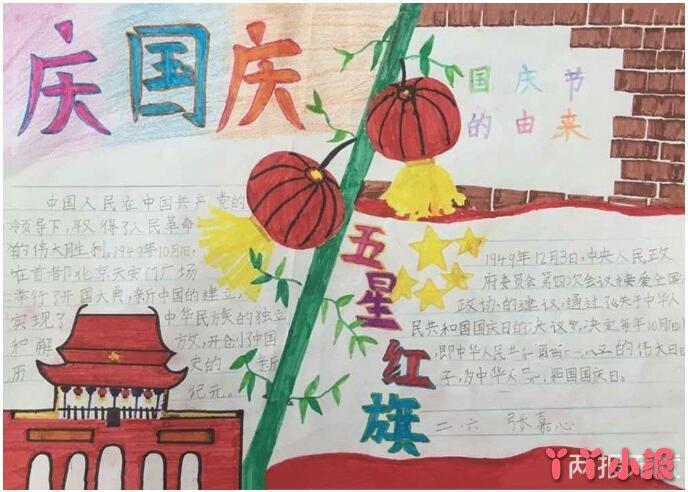 庆国庆
国庆节
的由来
中国人民在中国共产党的
领导下,取得了人民革命
的伟大胜利。1949年10月1日,
在首都北京天安门广场
举行了开国大典,新中国的建立,
实现了中华民族的独立
和解放,开创了中国
历史的新
纪元。
五星红旗
1949年12月3日,中央人民政
府委员会第四次会议接受全国
政协的建议,通过了《关于中华人
民共和国国庆日的决议》,决定每年10月1日
即中华人民共和国 的伟大日
子,为中华人民 和国国庆日。
二.六 张嘉心
丫丫小报
丙报